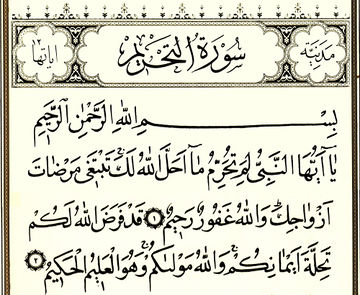 مدنية سورة التحريم اياتها ١٢
بِسْمِ اللهِ الرَّحْمٰنِ الرَّحِيمِ
يَا أَيُّهَا النَّبِيُّ لِمَ تُحَرِّمُ مَا أَحَلَّ اللهُ لَكَ تَبْتَغِي مَرْضَاتَ
أَزْوَاجِكَ وَاللهُ غَفُورٌ رَحِيمٌ ١ قَدْ فَرَضَ اللهُ لَكُمْ
تَحِلَّةَ أَيْمَانِكُمْ وَاللهُ مَوْلٰىكُمْ وَهُوَ الْعَلِيمُ الْحَكِيمُ ٢